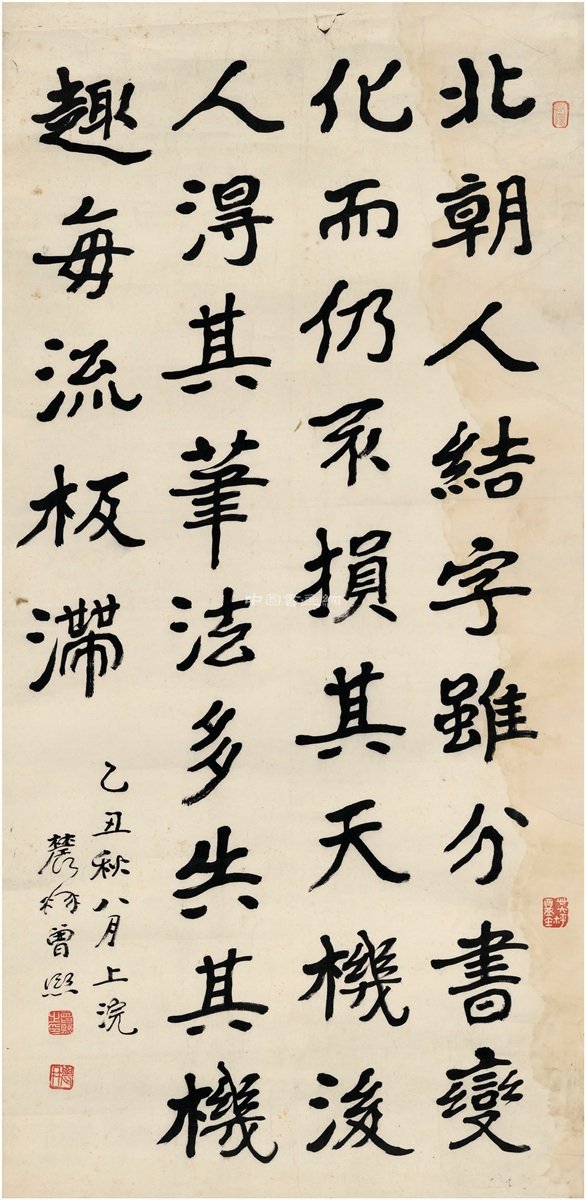 北朝人結字雖分書變
化而仍不損其天機後
人得其筆法多失其機
趣每流板滯
乙丑秋八月上浣
農髯曾熙
中国書画网